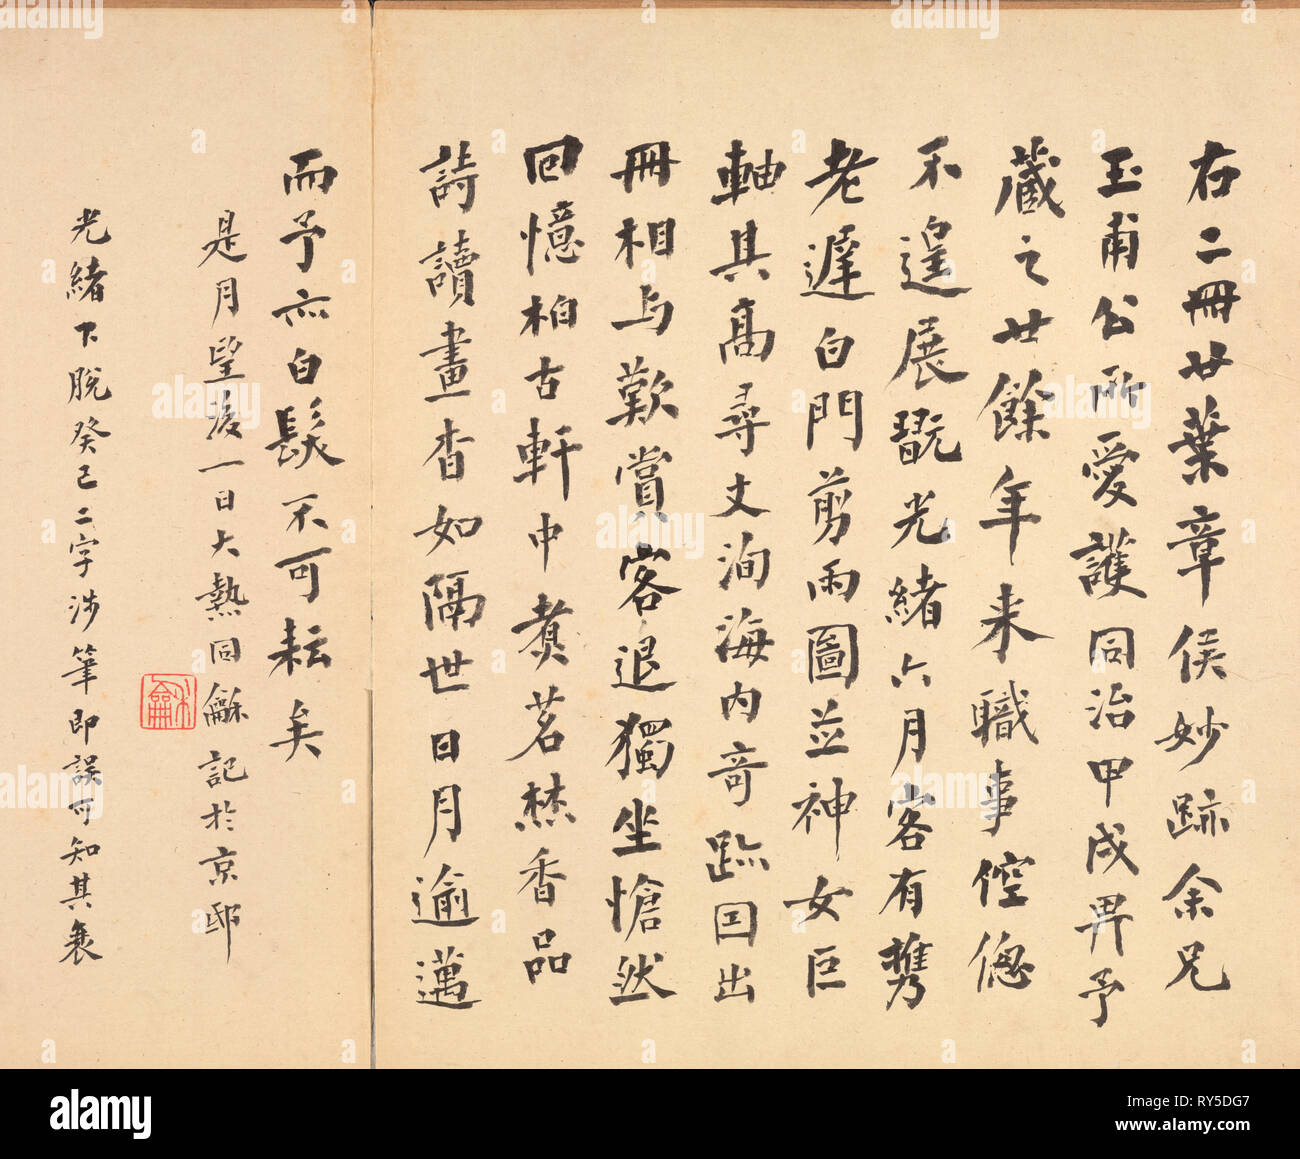 右二冊廿葉章侯妙跡余兄
玉甫公所愛護同治甲戌畀予
藏之廿餘年来職事倥偬
不遑展翫光緒六月客有攜
老遲白門剪雨圖並神女巨
軸其高尋丈洵海内奇跡因出
冊相与歎賞客退獨坐愴然
回憶柏古軒中煑茗焚香品
詩讀畫杳如隔世日月逾邁
而予亦白髮不可耘矣
是月望後一日大熱同龢記於京邸
光緒下脫癸巳二字涉筆即誤可知其衰
alamy
Image ID: RY5DG7
www.alamy.com